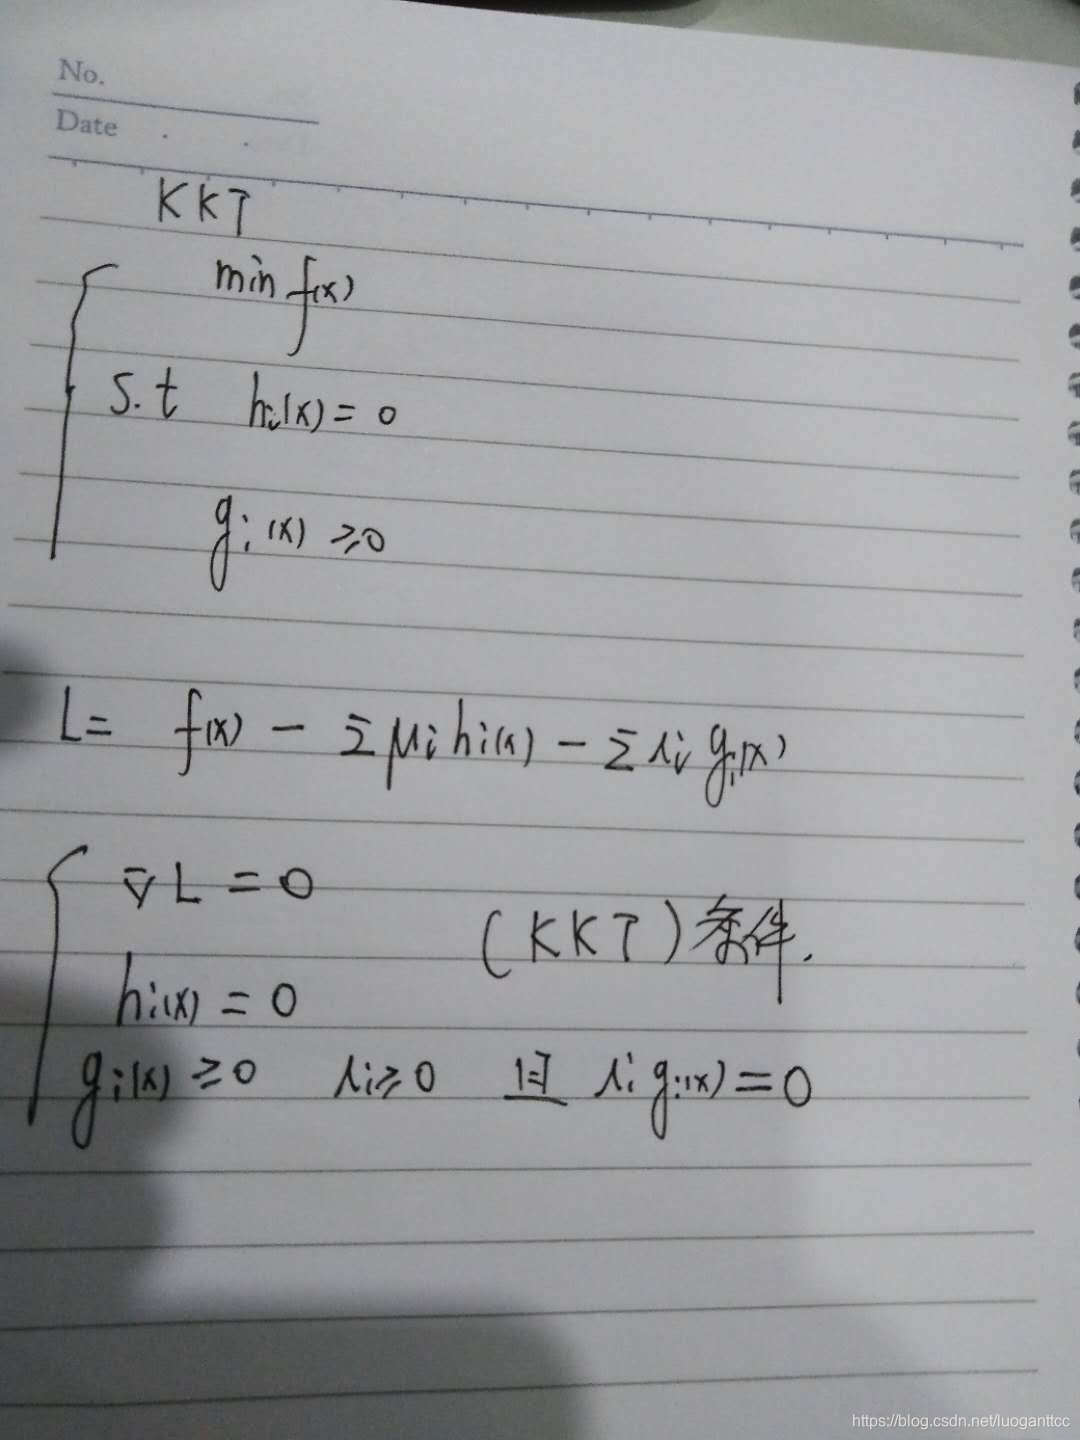 No.
Date
KKT
min f(x)
s.t hi(x) = 0
gi(x) ≥0
L= f(x) - Σμihi(x) - Σλigi(x)
∇L = 0
(KKT)条件.
hi(x) = 0
gi(x) ≥0 λi≥0 且 λigi(x)=0
https://blog.csdn.net/luoganttcc